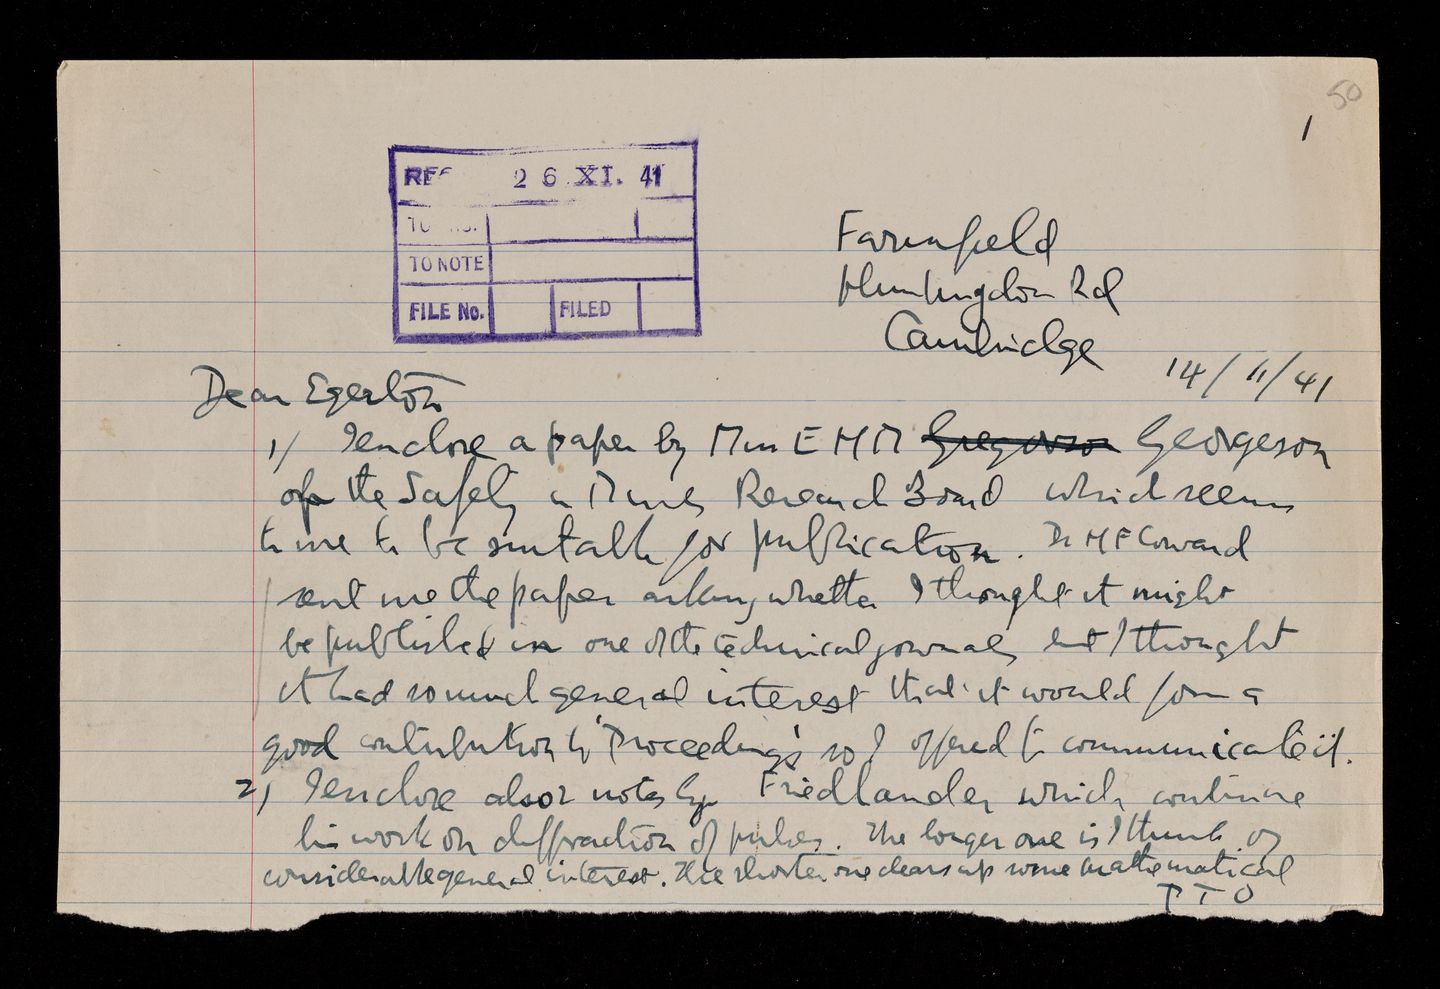 50
1
REC 26 XI. 41
TO NOTE
FILE No. FILED
Farmfield
Huntingdon Rd
Cambridge
14/11/41
Dear Egerton
1/ I enclose a paper by Miss E H M Gregorson Georgeson
of the Safety in Mines Research Board which seems
to me to be suitable for publication. Dr H F Coward
sent me the paper asking whether I thought it might
be published in one of the technical journals but I thought
it had so much general interest that it would form a
good contribution to 'Proceedings' so I offered to communicate it.
2/ I enclose also 2 notes by Friedlander which continue
his work on diffraction of pulses. The longer one is I think of
considerable general interest. The shorter one clears up some mathematical
P T O